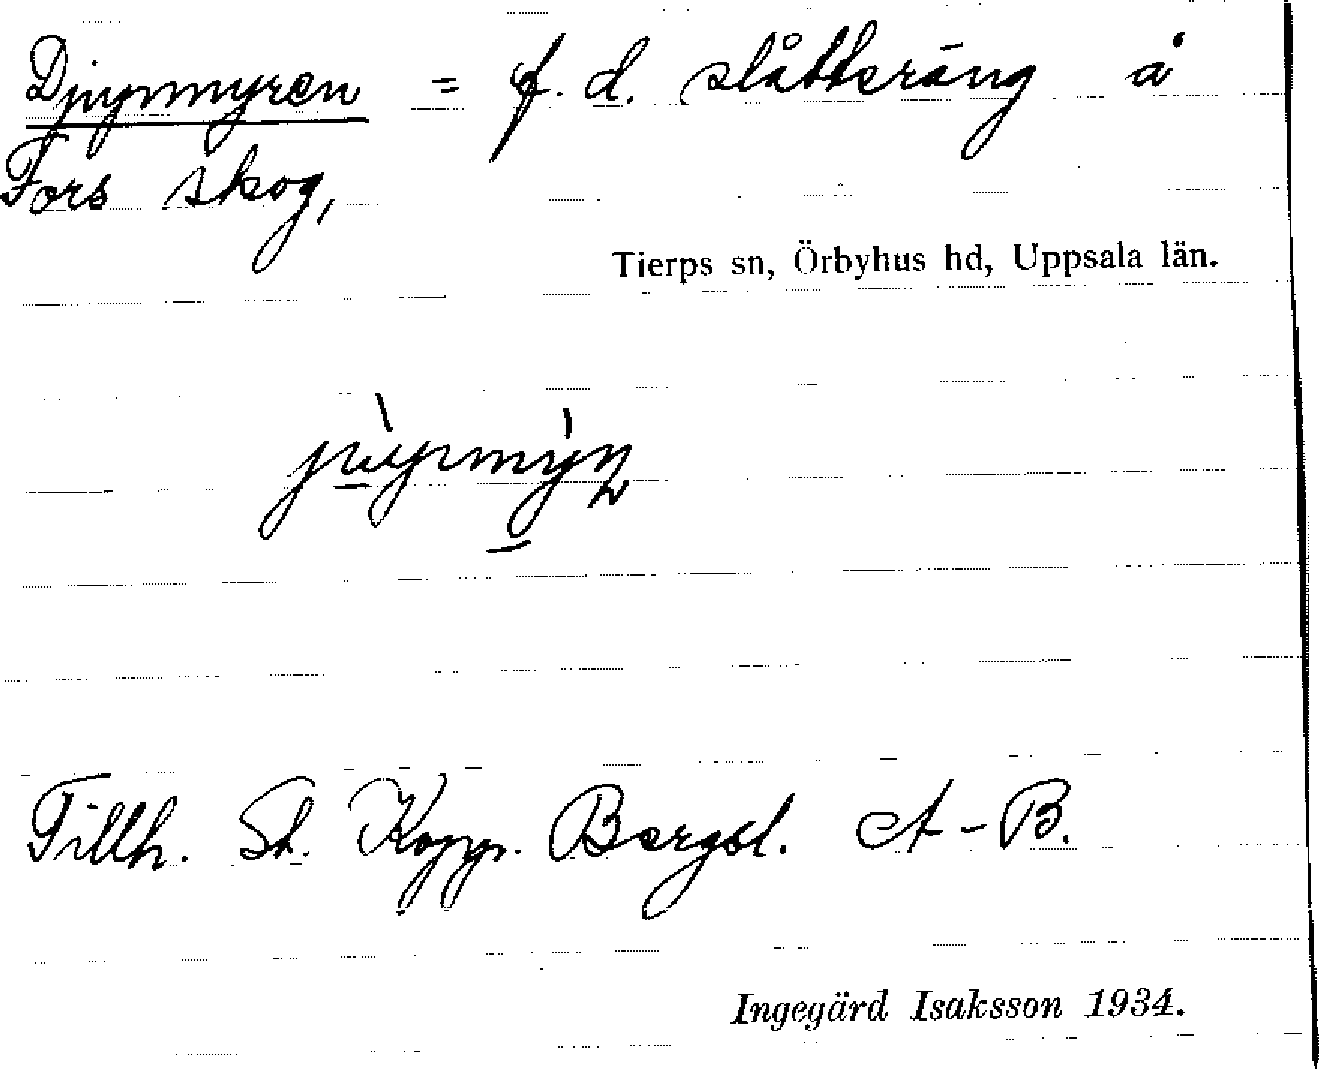 Djupmyren = f. d. slåtteräng å
Fors skog,
Tierps sn, Örbyhus hd, Uppsala län.
Tillh. St. Kopp. Bergsl. A-B.
Ingegärd Isaksson 1934.